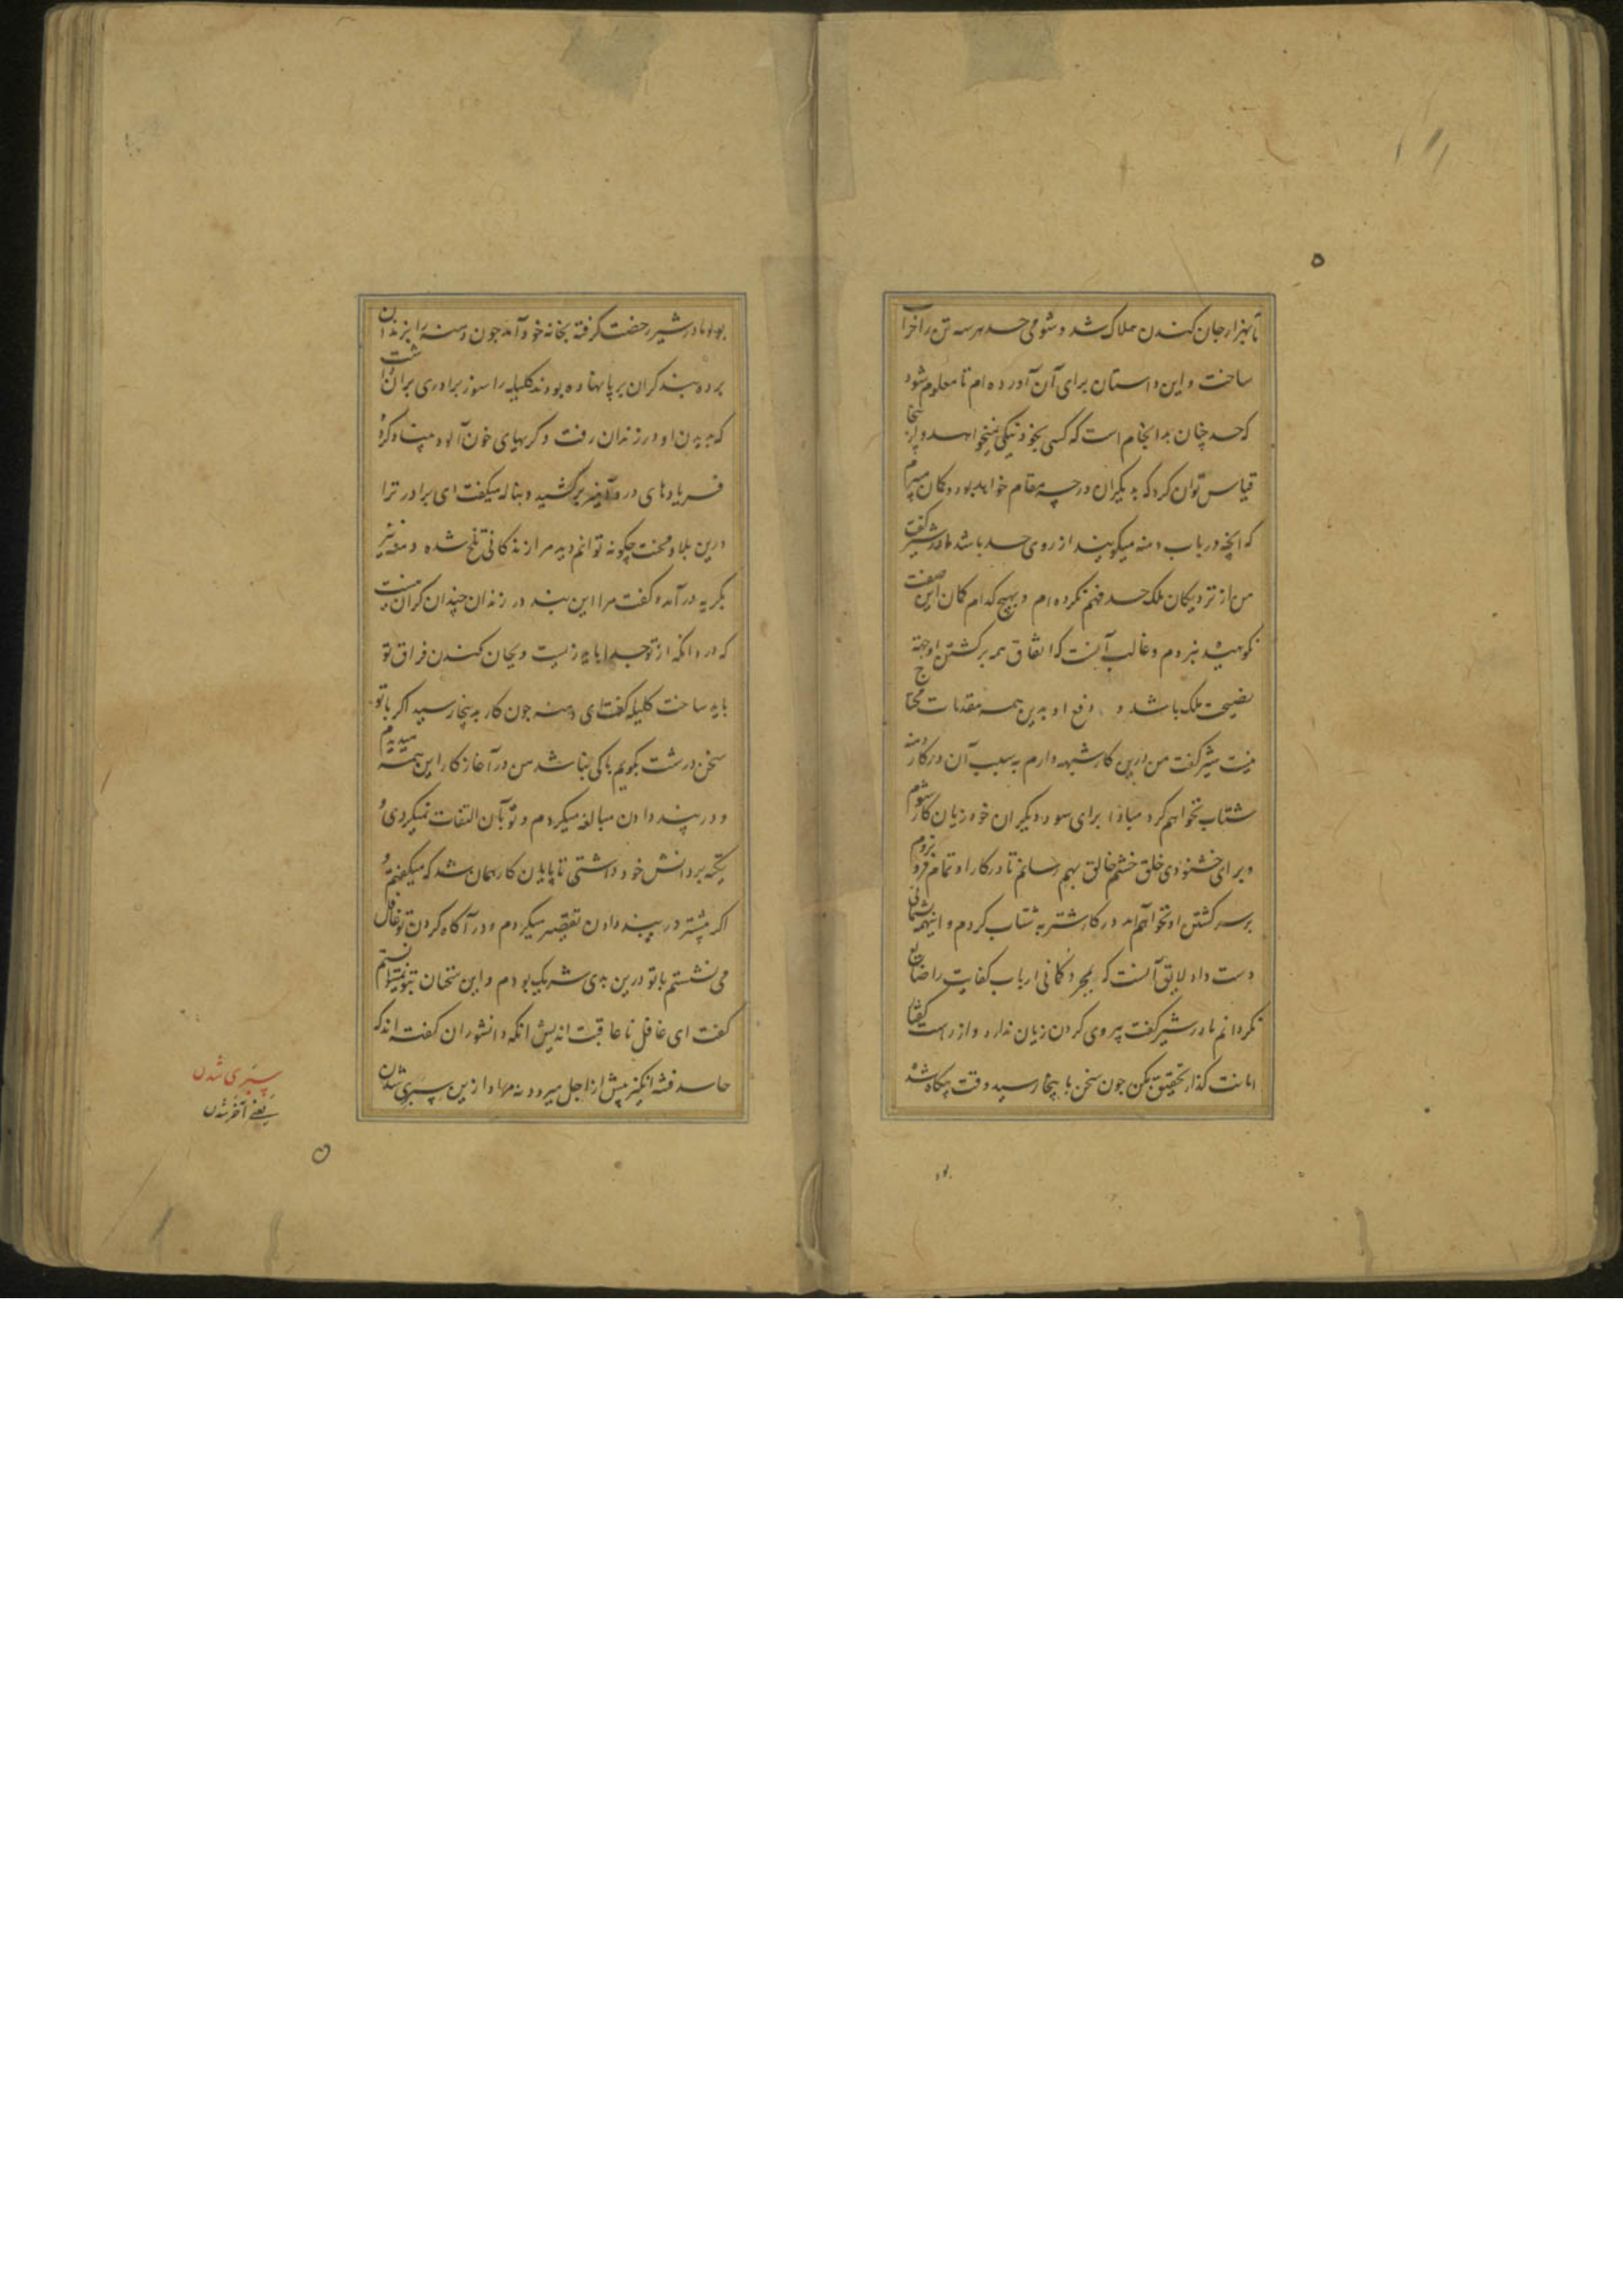 تا بهزار جان کندن هلاک شد و شومی حسد هر سه تن را خراب
ساخت و این داستان برای آن آورده ام تا معلوم شود
که حسد چنان بد انجام است که کسی بخود نیکی نمیخواهد و از اینجا
قیاس توان کرد که بدیگران در چه مقام خواهد بود و کمان میبرم
که آنچه در باب دمنه میکویند از روی حسد باشد مادر شیر کفت
من از نزدیکان ملک حسد فهم نکرده ام و بهیچ کدام کمان این صفت
نکوهیده نبردم و غالب آنست که اتفاق همه بر کشتن او جهة
نصیحت ملک باشد و رفع او بدین همه مقدمات محتاج
نیست شیر کفت من درین کار شبهه دارم به سبب آن در کار دمنه
شتاب نخواهم کرد مبادا برای سود دیکران خود زیان کار شوم
و برای خشنودی خلق خشم خالق بهم رسانم تا در کار او تمام فرو نروم
بر سر کشتن او نخواهم آمد در کار شتربه شتاب کردم و اینهمه پشیمانی
دست داد لایق آنست که بمجرد کمانی ارباب کفایت را ضایع
نکردانم مادر شیر کفت پیروی کردن زیان ندارد و از راست کفتار
امانت کذار تحقیق بکن جون سخن باینجا رسید وقت بیکاه شده
بود
بود مادر شیر رخصت کرفته بخانه خود آمد جون دمنه را بزندان
برده بند کران بر پا نهاده بودند کلیله را سوز برادری بران داشت
که بدیدن او در زندان رفت و کریهای خون آلود بنیاد کرده
فریادهای درد آمیز برکشید و بناله میکفت ای برادر ترا
درین بلا و محنت چکونه توانم دید مرا زندکانی تلخ شده دمنه نیز
بکریه در آمد و کفت مرا این بند در زندان چندان کران نیست
که درد آنکه از تو جدا باید زیست و بجان کندن فراق تو
باید ساخت کلیله کفت ای دمنه جون کار بدینجا رسید اکر با تو
سخن درشت بکویم باکی نباشد من در آغاز کار این همه میدیدم
و در پند دادن مبالغه میکردم و تو بآن التفات نمیکردی و
تکیه بر دانش خود داشتی تا پایان کار همان شد که میکفتم و
اکر پیشتر در پند دادن تقصیر میکردم و در آکاه کردن تو غافل
می نشستم با تو درین بدی شریک بودم و این سخنان بتو نمیتوانستم
کفت ای غافل نا عاقبت اندیش آنکه دانشوران کفته اند که
حاسد فتنه انکیز پیش از اجل میرود نه مراد ازین سپری شدن
سپری شدن
یعنی آخر شدن